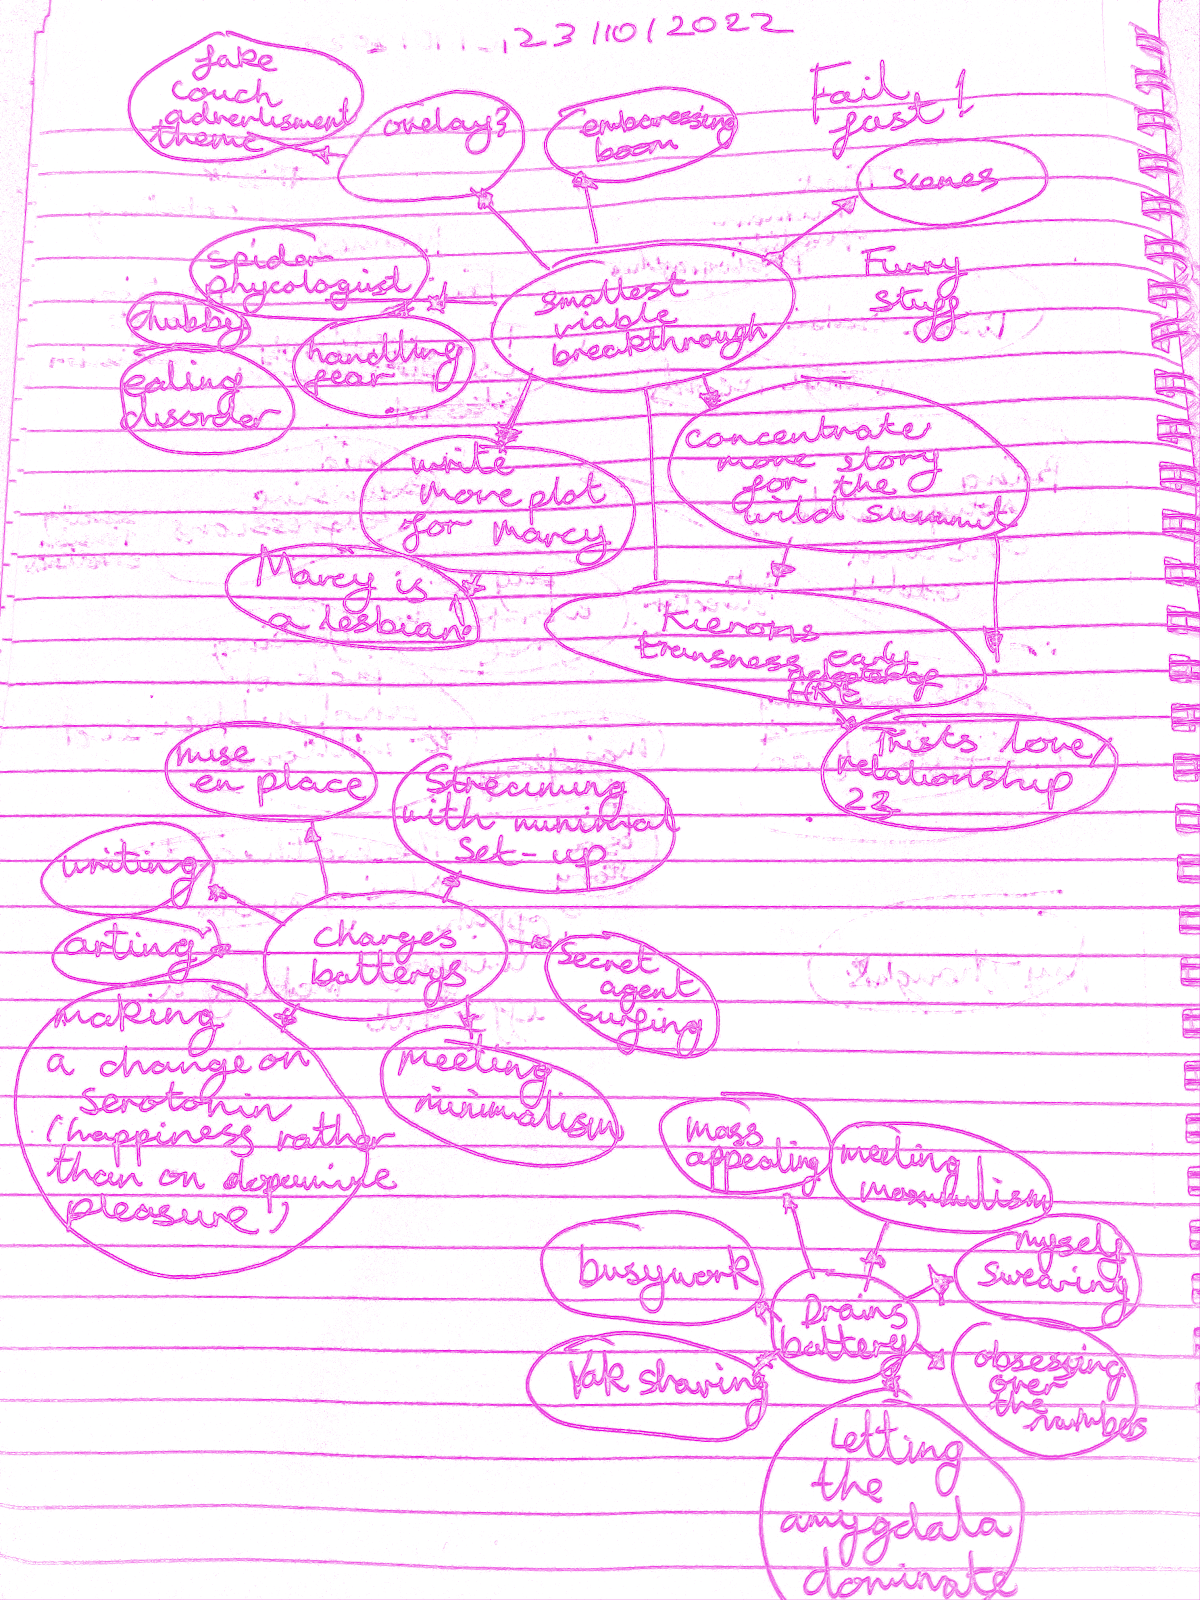 23/10/2022
fake
couch
advertisment
theme
embaressing
boom
Fail
fast!
scenes
spider
phycologist
chubby
eating
disorder
handling
fear
smallest
viable
breakthrough
Funny
Stuff
write
more plot
for Marcy
concentrate
more story
for the
wild summit
Marcy is
a lesbian
Kierons
transness early
HRE
Trists love/
relationship
22
mise
en place
Streaming
with minimal
set-up
writing
arting
charges
batterys
Secret
agent
surfing
making
a change on
serotonin
(happiness rather
than on dopamine
pleasure)
meeting
minimalism
mass
appealing
meeting
maximalism
busywork
Drains
battery
myself
swearing
Yak sharing
obsessing
over
the
numbers
Letting
the
amygdala
dominate